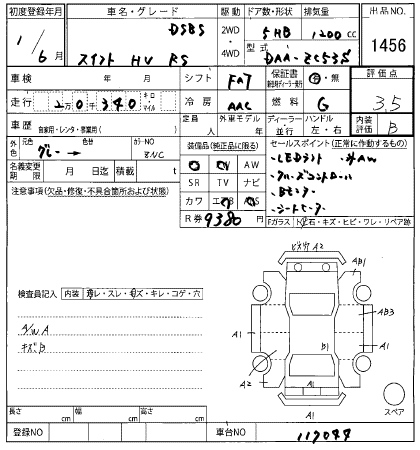 初度登録年月 車名・グレード 駆動 ドア数・形状 排気量 出品NO.
1/6月 スイフト HV RS DSBS 2WD・4WD 5HB 1200cc 1456
型式 DAA-ZC53S
車検 年 月 シフト FA7 保証書 有・無 評価点
走行 2万0千340 キロ・マイル 冷房 AAC 燃料 G 3.5
車歴 自家用・レンタ・事業用( ) 定員 人 外車モデル 年 ディーラー・並行 ハンドル 左・右 内装 B
外色 元色 グレー → 色替 カラーNO ZNC 装備品(純正品に限る) セールスポイント(正常に作動するもの)
名義変更期限 月 日迄 積載 t
AW
SR TV ナビ
カワ エアB ABS
・LEDライト ・社外AW
・クルーズコントロール
・Bモニター
・シートヒーター
R券 9380円
Fガラス 飛石・キズ・ヒビ・ワレ・リペア跡
注意事項(欠品・修復・不具合箇所および状態)
検査員記入 内装 スレ・スレ・キズ・キレ・コゲ・穴
A/W A
キズ.B
A2
AB1
AB3
A1
A1
B1
A2
A1
A1
スペア
長さ cm 幅 cm 高さ cm
登録NO 車台NO 117077